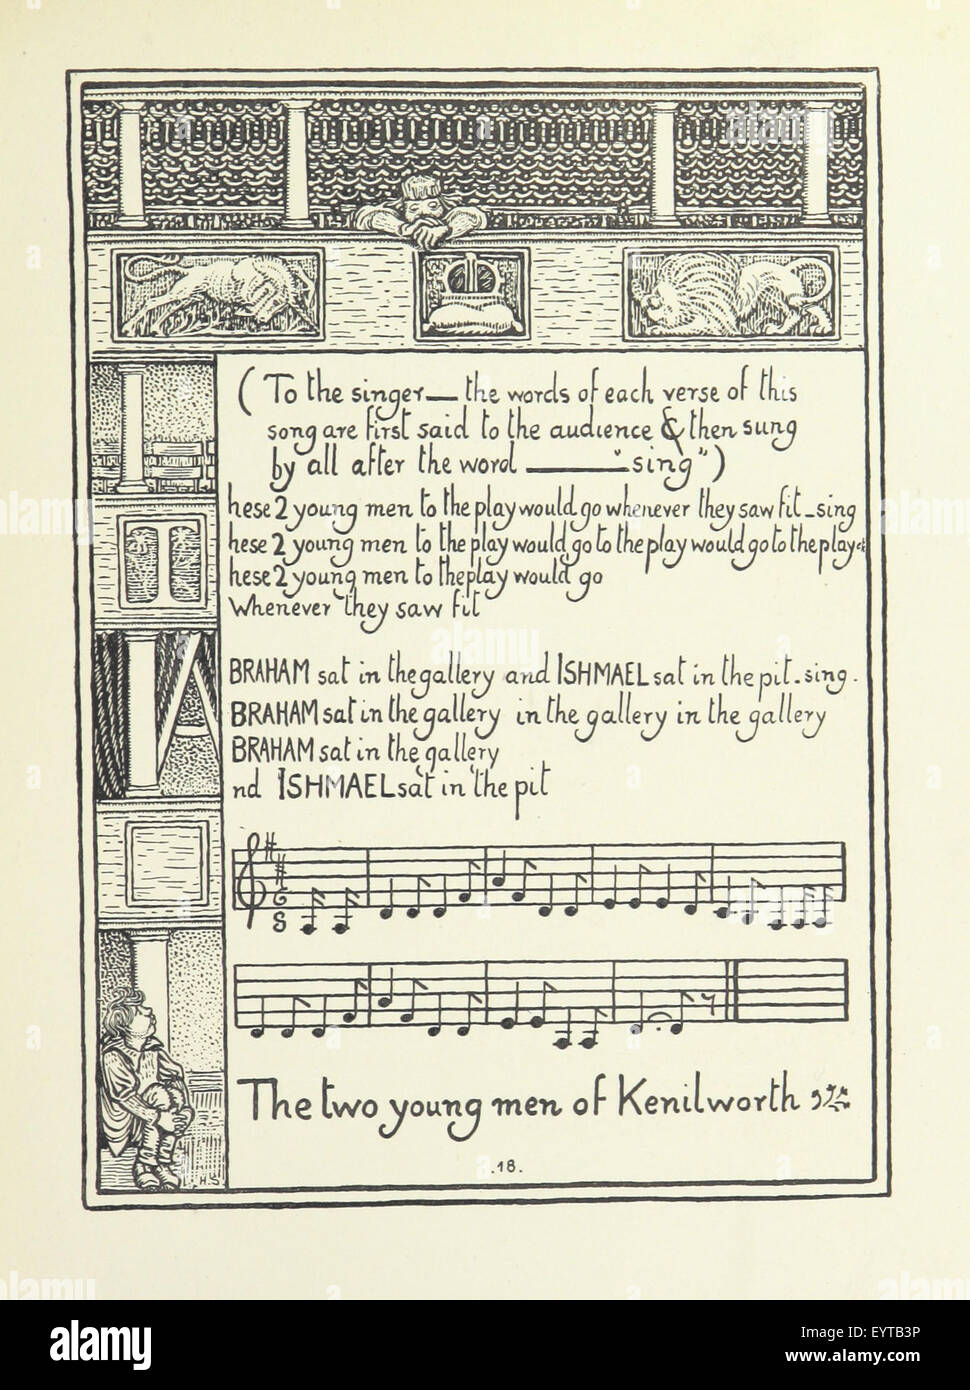 ( To the singer — the words of each verse of this
song are first said to the audience & then sung
by all after the word — "sing")
T
hese 2 young men to the play would go whenever they saw fit - sing
hese 2 young men to the play would go to the play would go to the play &c
hese 2 young men to the play would go
Whenever they saw fit
A
BRAHAM sat in the gallery and ISHMAEL sat in the pit - sing.
BRAHAM sat in the gallery in the gallery in the gallery
BRAHAM sat in the gallery
nd ISHMAEL sat in the pit
6
8
The two young men of Kenilworth
.18.
L.H.S
alamy
Image ID: EYTB3P
www.alamy.com